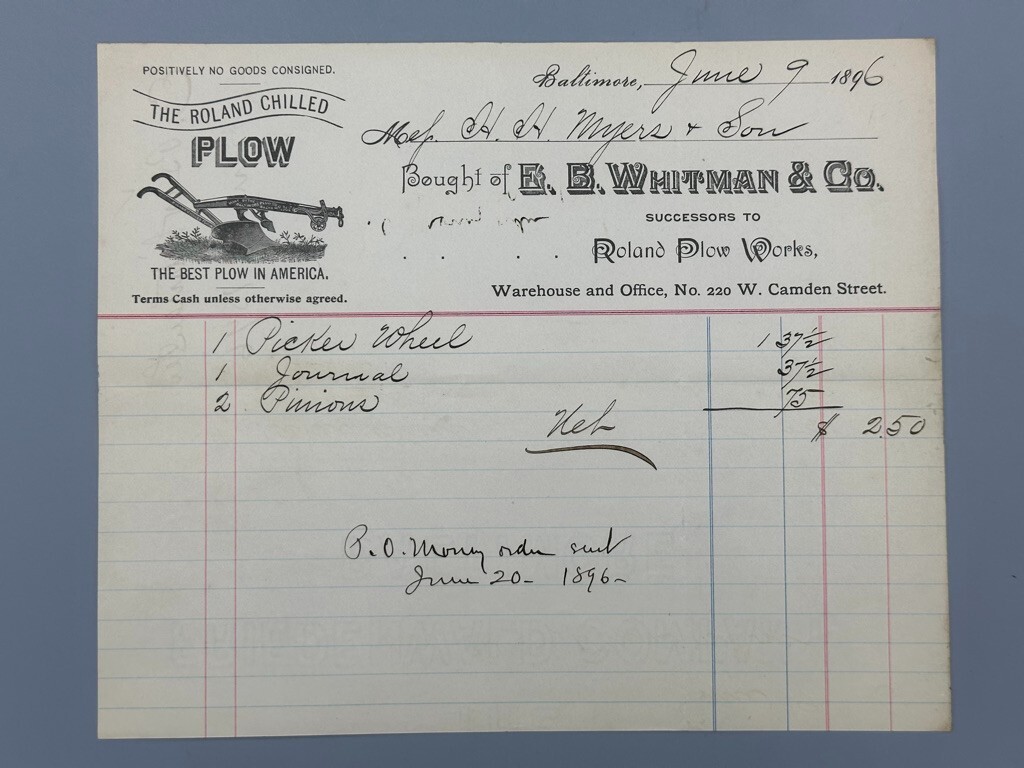 POSITIVELY NO GOODS CONSIGNED.
THE ROLAND CHILLED
PLOW
THE BEST PLOW IN AMERICA.
Terms Cash unless otherwise agreed.
Baltimore, June 9 1896
Mess. H. H. Myers & Son
Bought of E. B. WHITMAN & CO.
SUCCESSORS TO
Roland Plow Works,
Warehouse and Office, No. 220 W. Camden Street.
1 Picker Wheel 1 37½
1 Journal 37½
2 Pinions 75
Net $ 2.50
P.O. Money order sent
June 20- 1896-